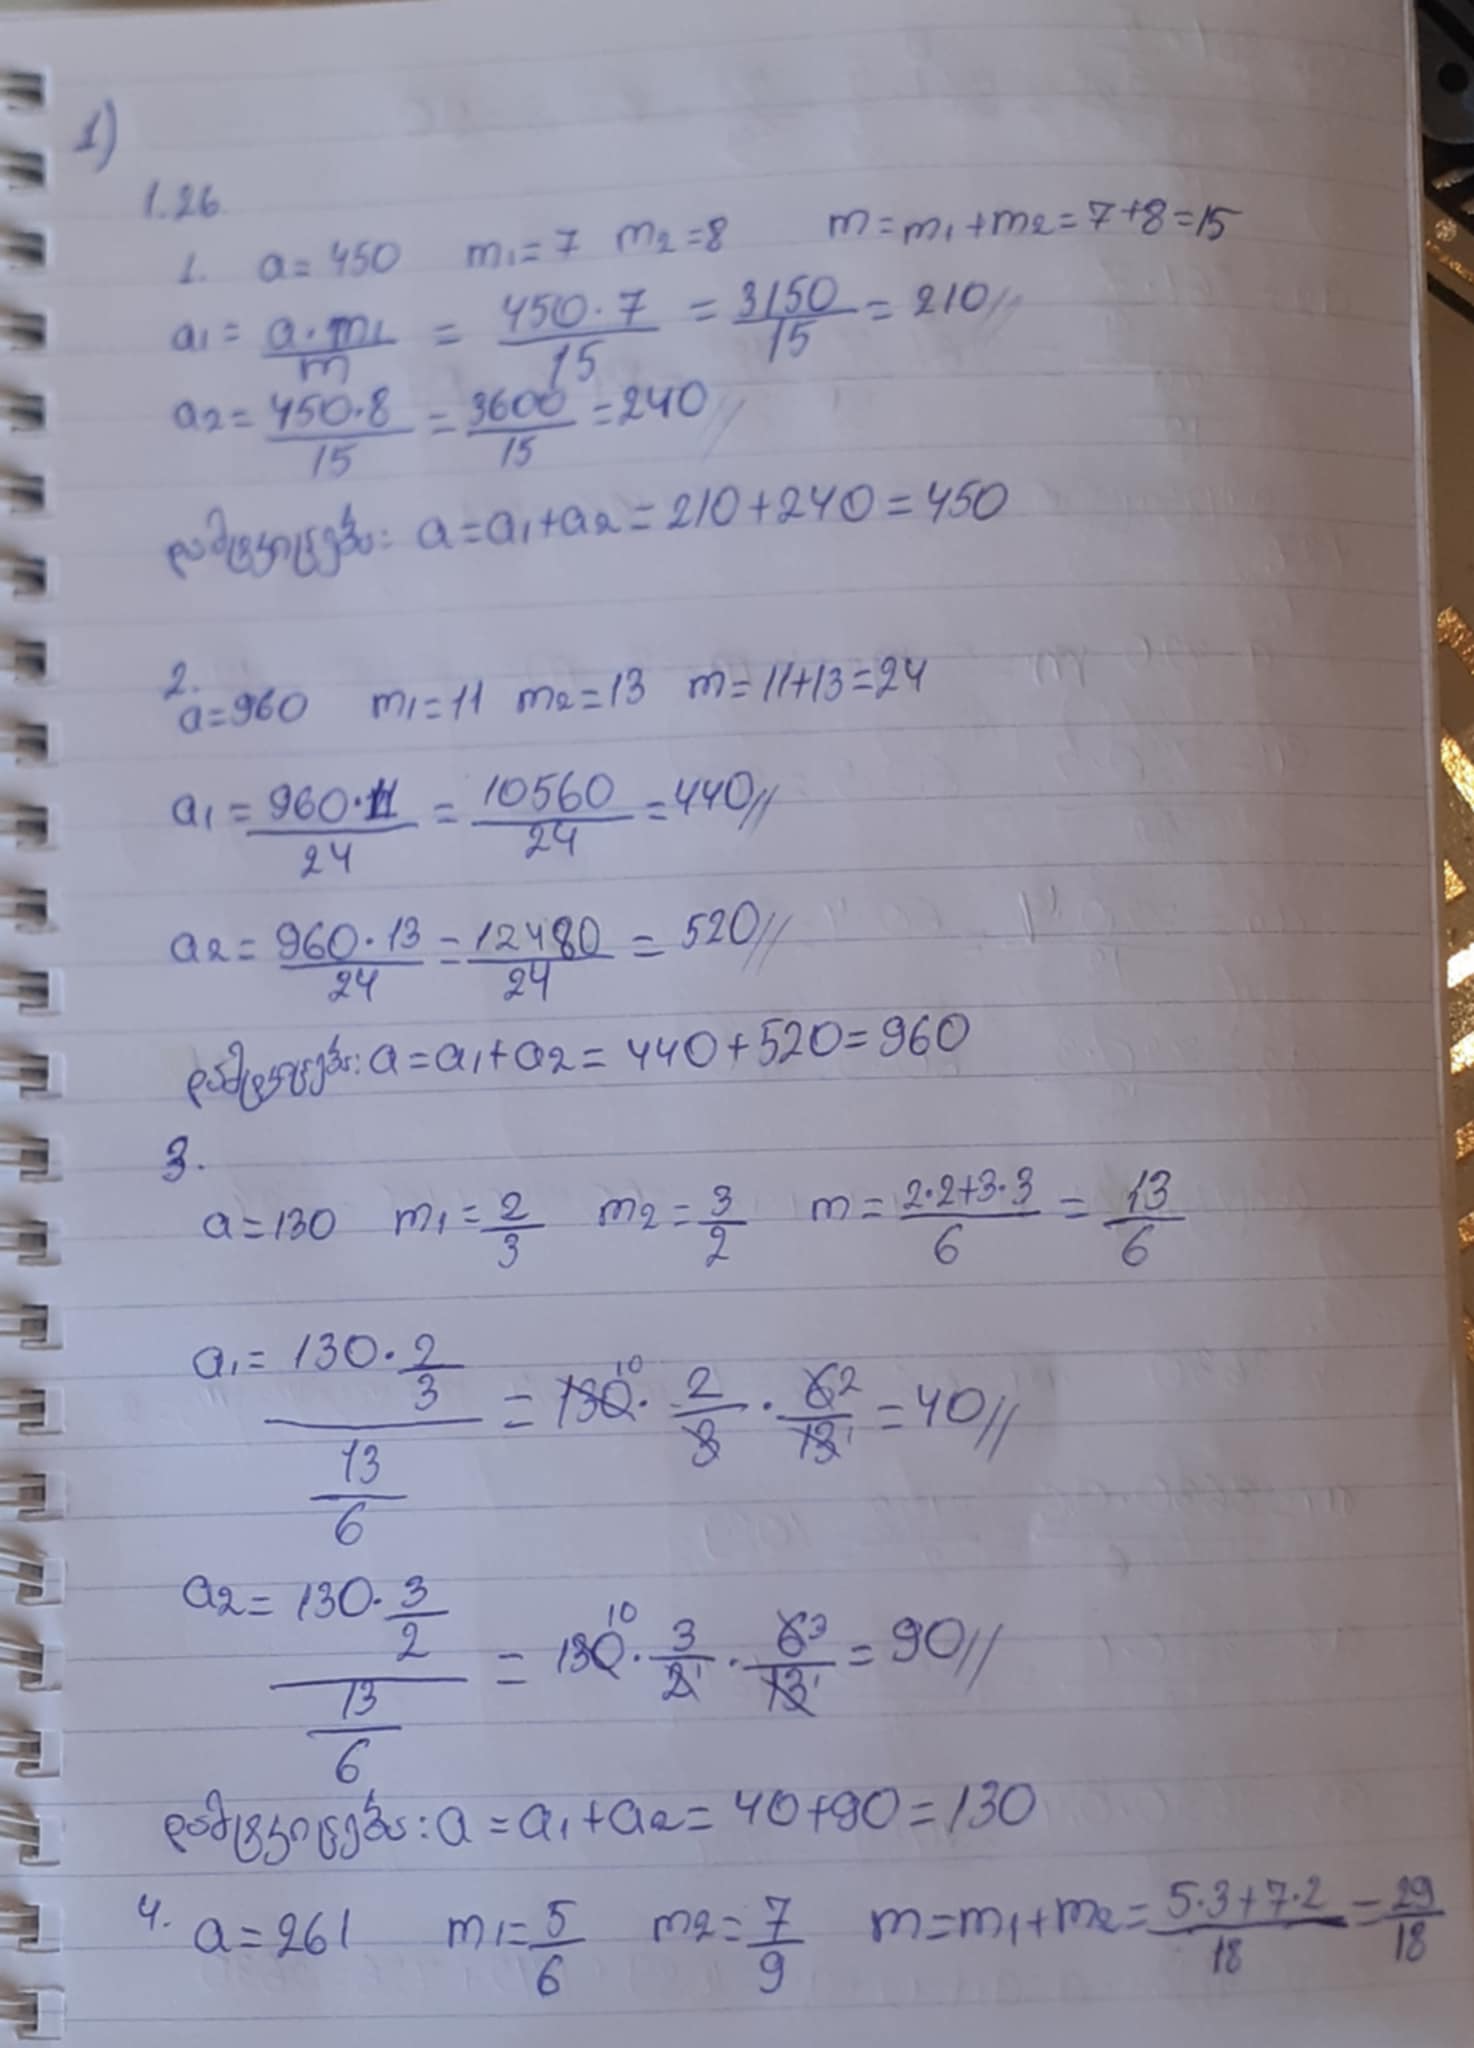 1)
1.26
1. a = 450 m₁ = 7 m₂ = 8 m = m₁ + m₂ = 7 + 8 = 15
a₁ = a·m₁/m = 450·7/15 = 3150/15 = 210//
a₂ = 450·8/15 = 3600/15 = 240//
დამტკიცება: a = a₁ + a₂ = 210 + 240 = 450
2.
a = 960 m₁ = 11 m₂ = 13 m = 11 + 13 = 24
a₁ = 960·11/24 = 10560/24 = 440//
a₂ = 960·13/24 = 12480/24 = 520//
დამტკიცება: a = a₁ + a₂ = 440 + 520 = 960
3.
a = 130 m₁ = 2/3 m₂ = 3/2 m = (2·2+3·3)/6 = 13/6
a₁ = (130·2/3)/(13/6) = 130 10 · 2/3 · 6 2/13 1 = 40//
a₂ = (130·3/2)/(13/6) = 130 10 · 3/2 1 · 6 3/13 1 = 90//
დამტკიცება: a = a₁ + a₂ = 40 + 90 = 130
4. a = 261 m₁ = 5/6 m₂ = 7/9 m = m₁ + m₂ = (5·3+7·2)/18 = 29/18